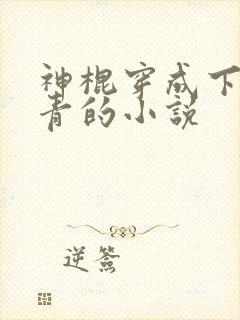 神棍穿成下
青的小説
逆签